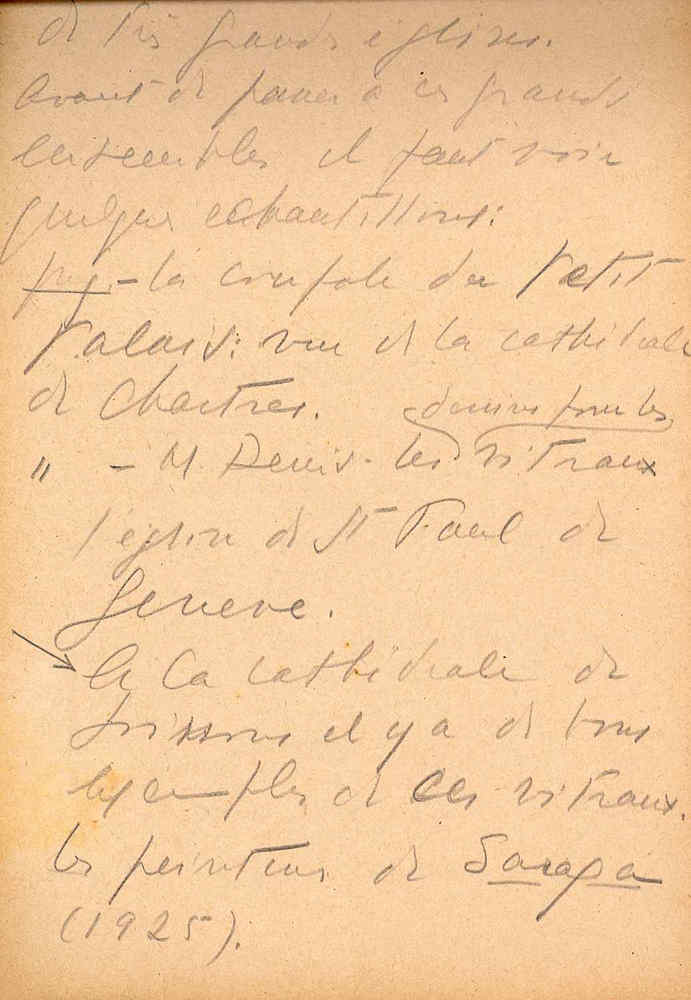 de très grandes églises.
Avant de passer à ces grands
ensembles il faut voir
quelques echantillons:
fig. - la coupole du Petit
Palais: vue de la cathédrale
de Chartres. dessins pour les
" - M Denis - les vitraux
l'église de St Paul de
Geneve.
A la cathédrale de
Soissons il y a de bons
exemples de ces vitraux.
les peintures de Saraga
(1925).